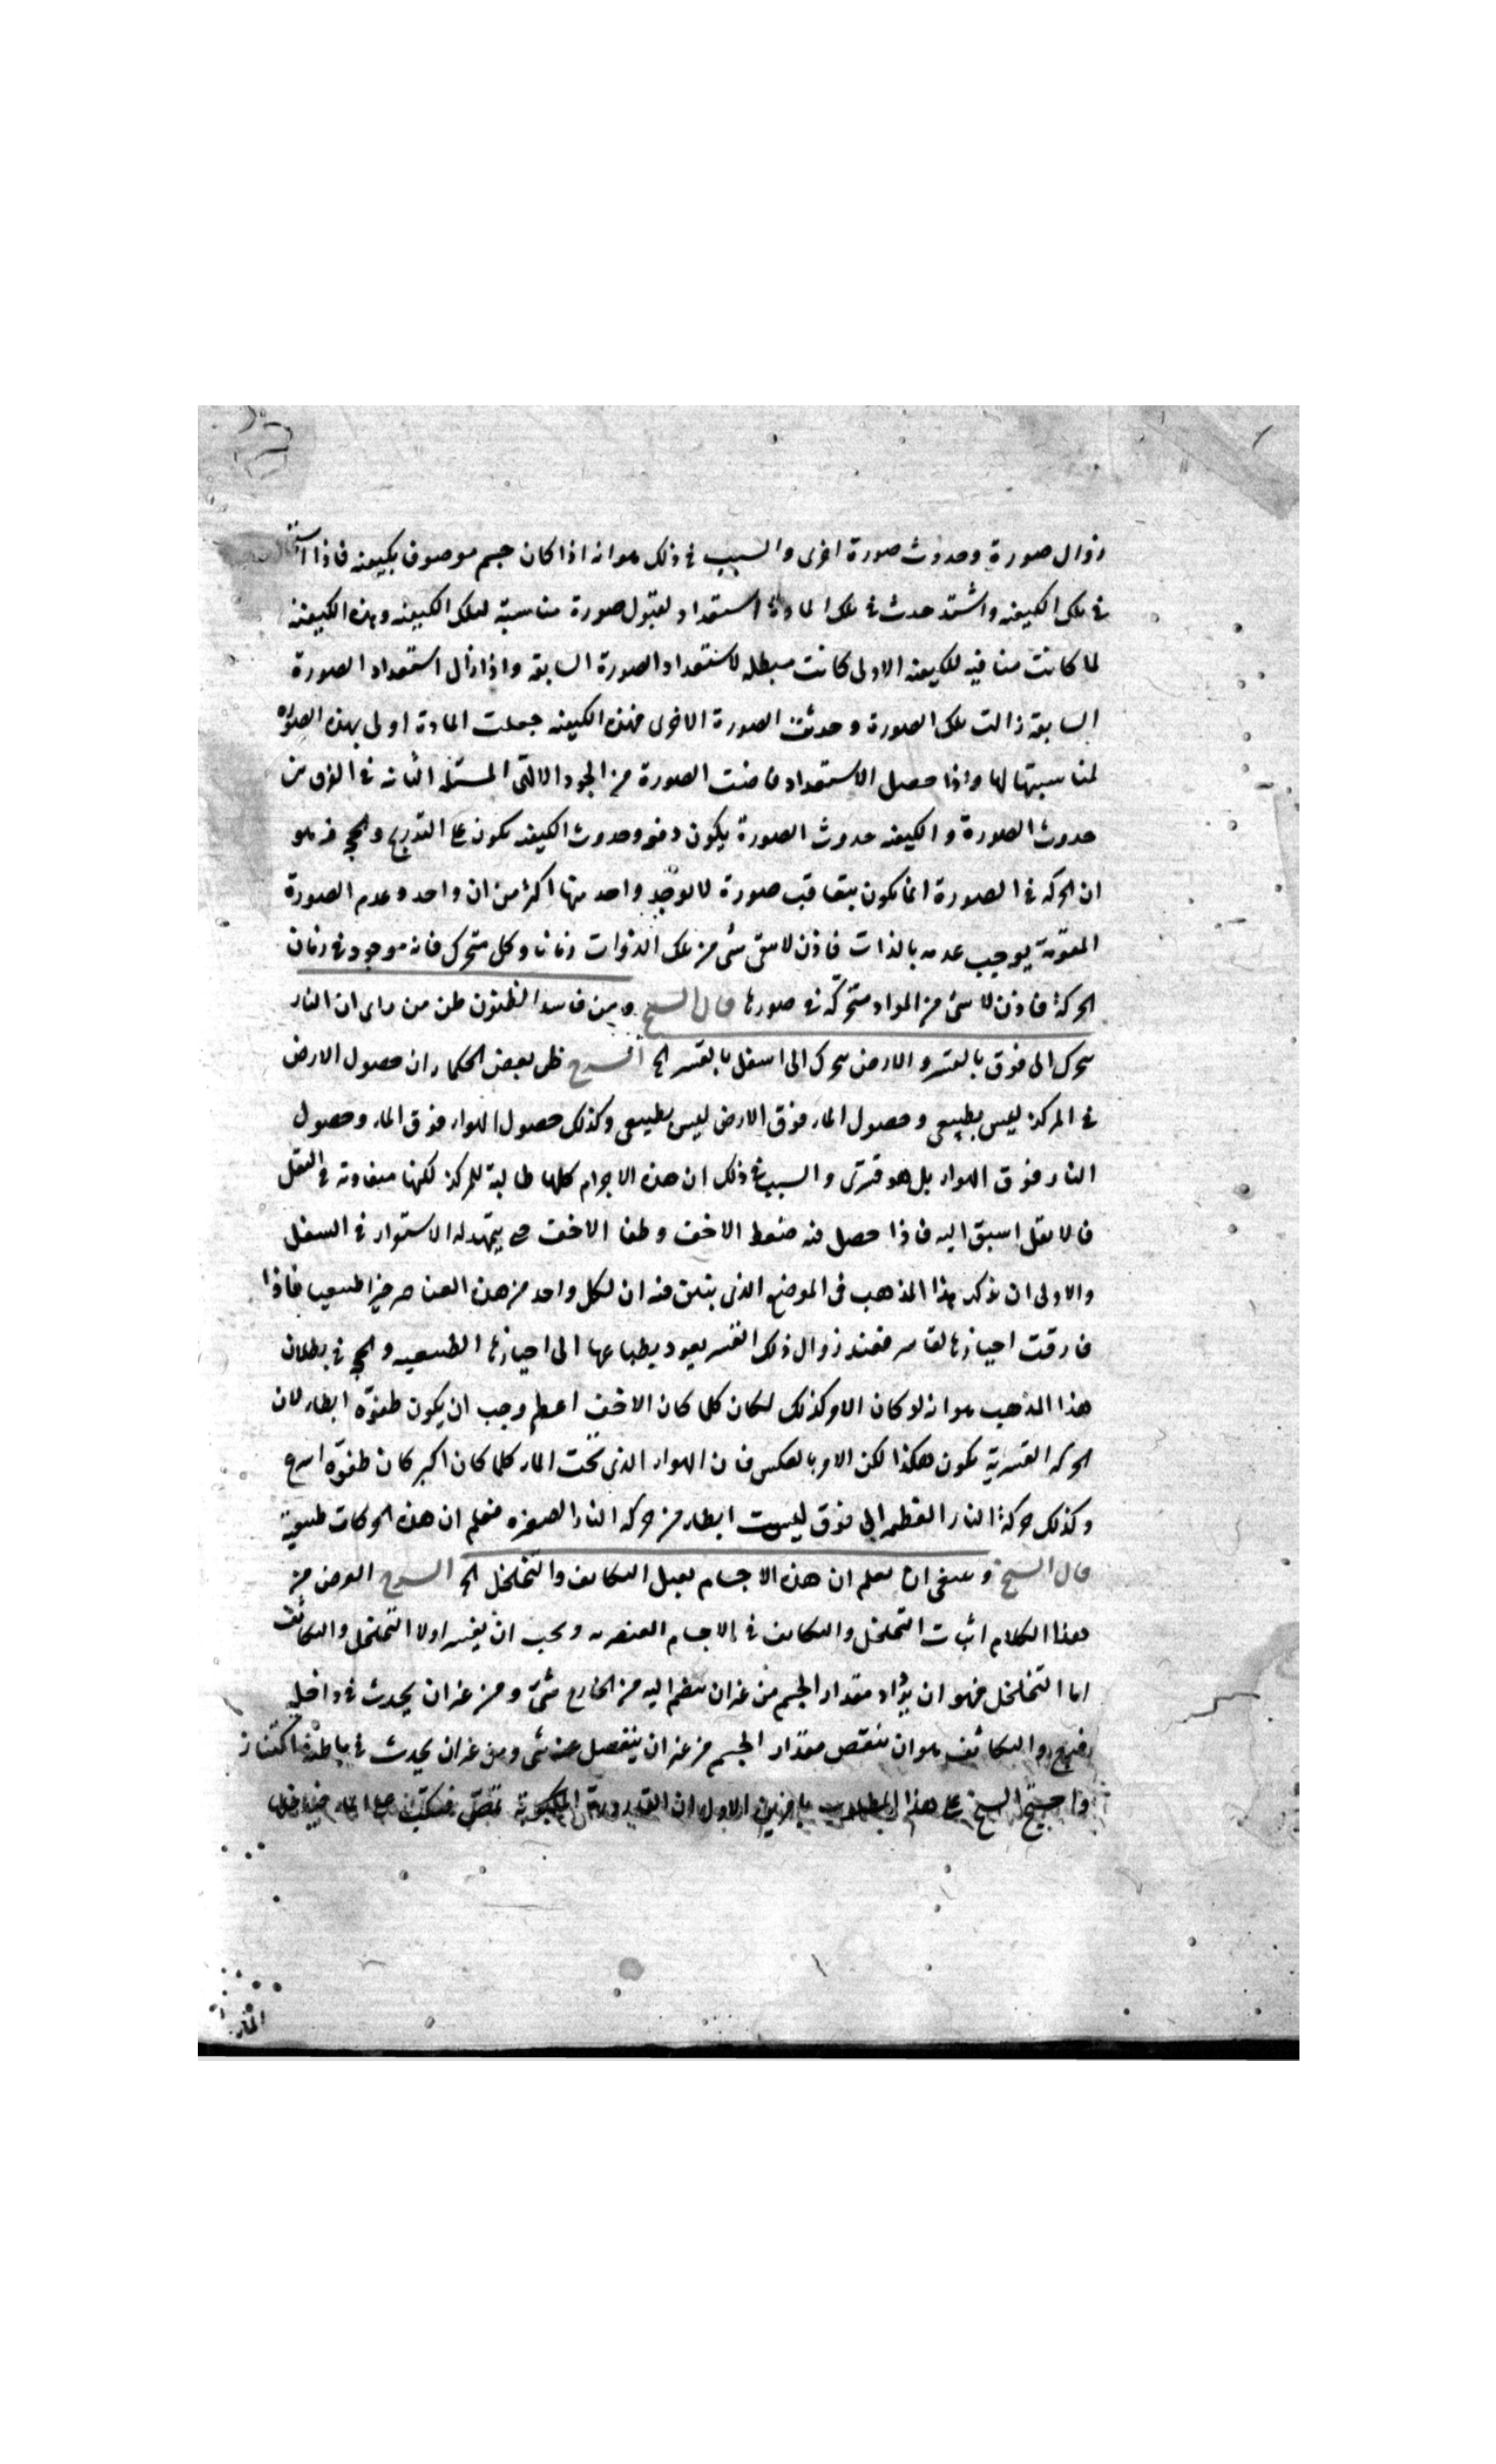 زوال صورة وحدوث صورة اخرى والسبب في ذلك هو انه اذا كان جسم موصوف بكيفيه فاذا
في تلك الكيفيه واشتد حدث في تلك المادة استعداد لقبول صورة مناسبة لتلك الكيفيه وهذه الكيفيه
لما كانت منافيه للكيفيه الاولى كانت مبطله لاستعداد الصورة السابقه واذا زال استعداد الصورة
السابقه زالت تلك الصورة وحدثت الصورة الاخرى فهذه الكيفيه جعلت المادة اولى بهذه الصورة
لمناسبتها لها واذا حصل الاستعداد فاضت الصورة من الجود الالٰهى المسئله الثانيه في الفرق بين
حدوث الصورة والكيفيه حدوث الصورة يكون دفعه وحدوث الكيفيه يكون على التدريج والحجه فيه هو
ان الحركه في الصورة انما يكون بتعاقب صورة لا يوجد واحد منها اكثر من ان واحد وعدم الصورة
المقومة يوجب عدمه بالذات فاذن لا يبقى شى من تلك الذوات زمانا وكل متحرك فانه موجود في زمان
الحركة فاذن لا شى من المواد متحركه في صورها قال الشيخ ومن فاسد الظنون ظن من راى ان النار
يتحرك الى فوق بالقسر والارض يتحرك الى اسفل بالقسر الخ الشرح ظن بعض الحكماء ان حصول الارض
في المركز ليس بطبيعى وحصول الماء فوق الارض ليس بطبيعى وكذلك حصول الهواء فوق الماء وحصول
النار فوق الهواء بل هو قسرى والسبب في ذلك ان هذه الاجرام كلها طالبة للمركز لكنها متفاوته في الثقل
فالاثقل اسبق اليه فاذا حصل فيه ضغط الاخف وطفا الاخف حتى يتمهد له الاستواء في السفل
والاولى ان يذكر هذا المذهب فى الموضع الذى يتبين فيه ان لكل واحد من هذه العناصر حيزا طبيعيا فاذا
فارقت احيازها لقاسر فعند زوال ذلك القسر يعود بطباعها الى احيازها الطبيعيه والحجه في بطلان
هذا المذهب هو انه لو كان الامر كذلك لكان كلما كان الاخف اعظم وجب ان يكون طفوّه ابطاء لان
الحركه القسريه يكون هكذا لكن الامر بالعكس فان الهواء الذى تحت الماء كلما كان اكبر كان طفوّه اسرع
وكذلك حركة النار العظيمه الى فوق ليست ابطاء من حركه النار الصغيره فعلم ان هذه الحركات طبيعيه
قال الشيخ وينبغى ان تعلم ان هذه الاجسام يقبل التكاثف والتخلخل الخ الشرح الغرض من
هذا الكلام اثبات التخلخل والتكاثف في الاجسام العنصريه ويجب ان يفسر اولا التخلخل والتكاثف
اما التخلخل فهو ان يزداد مقدار الجسم من غير ان ينضم اليه من الخارج شئ ومن غير ان يحدث في داخله
والتكاثف هو ان ينقص مقدار الجسم من غير ان ينفصل عنه شى ومن غير ان يحدث في باطنه اكتناز
واحتج الشيخ على هذا المطلوب بامرين الاول ان القارورة تمص فتكب على الماء